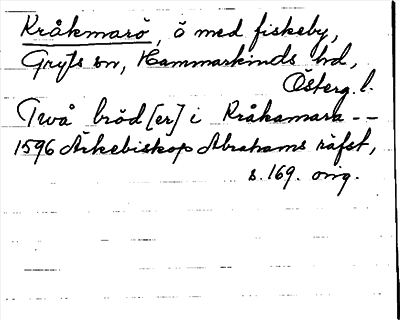 Kråkmarö, ö med fiskeby,
Gryts sn, Hammarkinds hd,
Österg. l.
Två bröd[er] i Kråkamara --
1596 Ärkebiskop Abrahams räfst,
s. 169. orig.